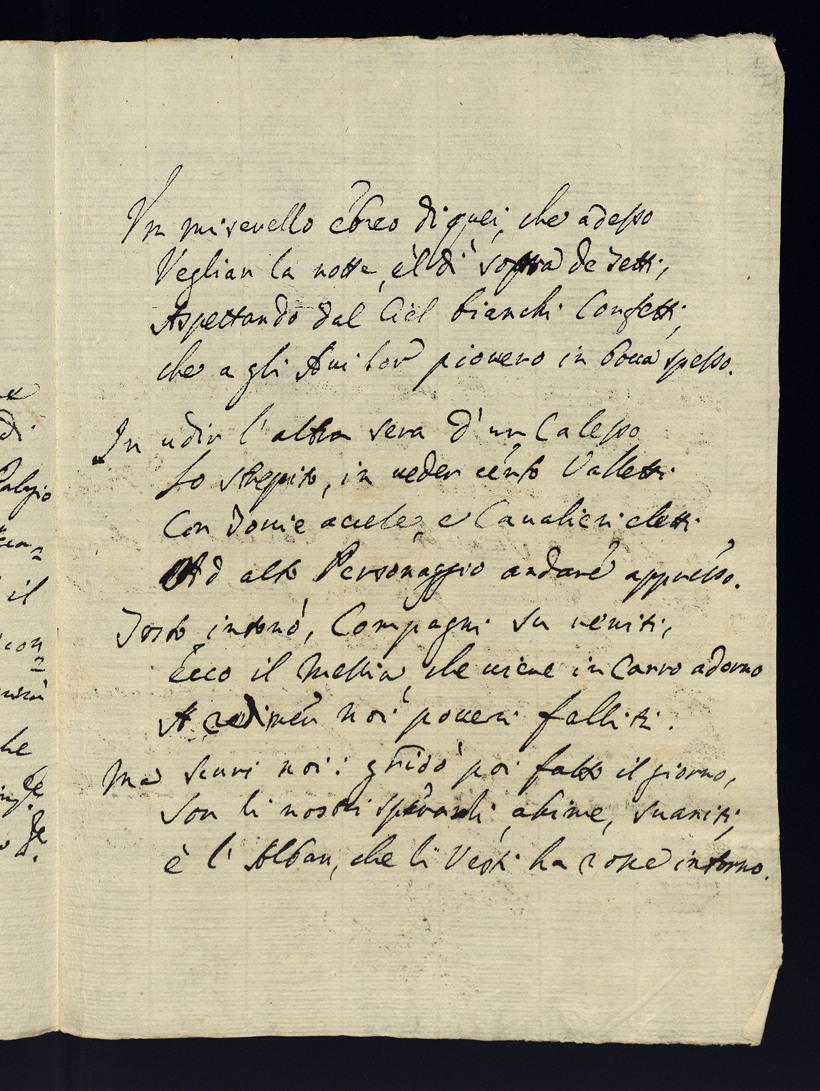 di
il
con
he
Un miserello ebreo di quei, che adesso
Veglian la notte, e'l dì sopra de Tetti,
Aspettando dal Ciel bianchi Confetti,
che a gli Avi lor piovero in bocca spesso.
In udir l'altra sera d'un Calesso
Lo strepito, in veder cento Valletti
Con Torcie accese, e Cavalieri eletti
Ad alto Personaggio andare appresso.
Tosto intonò, Compagni su venite,
Ecco il Messia, che viene in Carro adorno
A redimer noi poveri falliti.
Ma scuri noi: gridò poi fatto il giorno,
Son li nostri speranti, ahime, svaniti,
è l'Alban, che li Vesti ha rosse intorno.